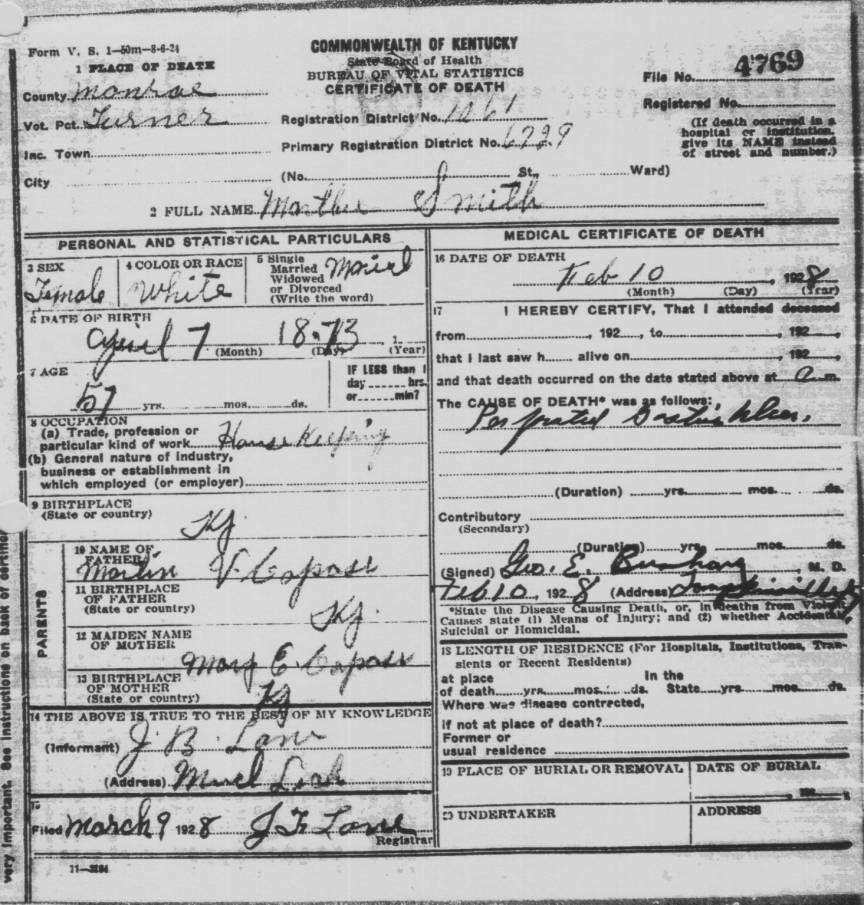 Form V. S. 1—50m—8-6-24
COMMONWEALTH OF KENTUCKY
State Board of Health
BUREAU OF VITAL STATISTICS
CERTIFICATE OF DEATH
File No. 4769
Registered No.
(If death occurred in a
hospital or institution,
give its NAME instead
of street and number.)
1 PLACE OF DEATH
County Monroe
Vot. Pct. Turner
Inc. Town
City
Registration District No. 1061
Primary Registration District No. 6729
(No. St., Ward)
2 FULL NAME Marthie Smith
PERSONAL AND STATISTICAL PARTICULARS
3 SEX
Female
4 COLOR OR RACE
White
5 Single
Married
Widowed
or Divorced
(Write the word)
6 DATE OF BIRTH
April 7 1873, 1
(Month) (Day) (Year)
7 AGE
57 yrs. mos. ds.
IF LESS than 1
day hrs.
or min?
8 OCCUPATION
(a) Trade, profession or
particular kind of work House Keeping
(b) General nature of industry,
business or establishment in
which employed (or employer)
9 BIRTHPLACE
(State or country)
Ky
PARENTS
10 NAME OF
FATHER
Martin V Capasi
11 BIRTHPLACE
OF FATHER
(State or country)
Ky
12 MAIDEN NAME
OF MOTHER
Mary E Capasi
13 BIRTHPLACE
OF MOTHER
(State or country)
Ky
14 THE ABOVE IS TRUE TO THE BEST OF MY KNOWLEDGE
(Informant) J. B. Lane
(Address)
15
Filed March 9 1928 J F Lane
Registrar
11—3184
MEDICAL CERTIFICATE OF DEATH
16 DATE OF DEATH
Feb 10, 1928
(Month) (Day) (Year)
17 I HEREBY CERTIFY, That I attended deceased
from , 192 , to , 192 ,
that I last saw h alive on , 192 ,
and that death occurred on the date stated above at a m.
The CAUSE OF DEATH* was as follows:
Perforated Gastric Ulcer.
(Duration) yrs. mos. ds.
Contributory
(Secondary)
(Duration) yrs. mos. ds.
(Signed) Geo. E. , M. D.
Feb 10, 1928 (Address) Tompkinsville Ky
*State the Disease Causing Death, or, in deaths from Violent
Causes state (1) Means of Injury; and (2) whether Accidental,
Suicidal or Homicidal.
18 LENGTH OF RESIDENCE (For Hospitals, Institutions, Tran-
sients or Recent Residents)
at place In the
of death yrs. mos. ds. State yrs. mos. ds.
Where was disease contracted,
if not at place of death?
Former or
usual residence
19 PLACE OF BURIAL OR REMOVAL
DATE OF BURIAL
, 192
20 UNDERTAKER
ADDRESS
very important. See instructions on back of certificate